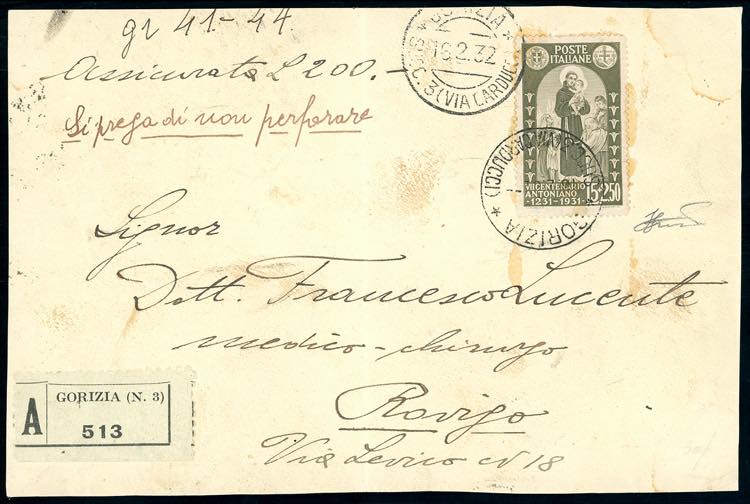 gr 41-44.
Assicurata L 200.-
Si prega di non perforare
GORIZIA
16.2.32
SUCC. 3 (VIA CARDUCCI)
POSTE
ITALIANE
VII CENTENARIO
ANTONIANO
-1231-1931-
L5+2.50
GORIZIA
(VIA CARDUCCI)
Signor
Dott. Francesco Lucente
medico-chirurgo
Rovigo
Via Levico N 18
A
GORIZIA (N. 3)
513